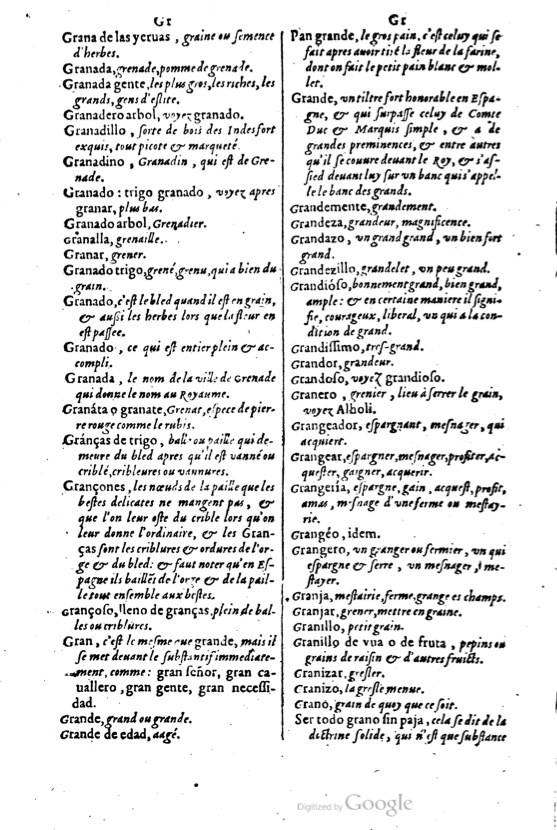 Gr
Grana de las yeruas, graine ou semence
d'herbes.
Granada, grenade, pomme de grenade.
Granada gente, les plus gros, les riches, les
grands, gens d'eslite.
Granadero arbol, voyez granado.
Granadillo, sorte de bois des Indes fort
exquis, tout picote & marqueté.
Granadino, Granadin, qui est de Gre-
nade.
Granado: trigo granado, voyez apres
granar, plus bas.
Granado arbol, Grenadier.
Granalla, grenaille.
Granar, grener.
Granado trigo, grené, grenu, qui a bien du
grain.
Granado, c'est le bled quand il est en grain,
& aussi les herbes lors que la fleur en
est passee.
Granado, ce qui est entier plein & ac-
compli.
Granada, le nom de la ville de Grenade
qui donne le nom au Royaume.
Granáta o granate, Grenat, espece de pier-
re rouge comme le rubis.
Gránças de trigo, balle ou paille qui de-
meure du bled apres qu'il est vanné ou
criblé, cribleures ou vannures.
Grançones, les nœuds de la paille que les
bestes delicates ne mangent pas, &
que l'on leur oste du crible lors qu'on
leur donne l'ordinaire, & les Gran-
ças sont les criblures & ordures de l'or-
ge & du bled: & faut noter qu'en Es-
pagne ils baillẽt de l'orge & de la pail-
le tout ensemble aux bestes.
Grançoso, lleno de granças, plein de bal-
les ou criblures.
Gran, c'est le mesme que grande, mais il
se met deuant le substantif immediate-
ment, comme: gran señor, gran ca-
uallero, gran gente, gran necessi-
dad.
Grande, grand ou grande.
Grande de edad, aagé.
Gr
Pan grande, le gros pain, c'est celuy qui se
fait apres auoir tiré la fleur de la farine,
dont on fait le petit pain blanc & mol-
let.
Grande, vn tiltre fort honorable en Espa-
gne, & qui surpasse celuy de Comte
Duc & Marquis simple, & a de
grandes preminences, & entre autres
qu'il se couure deuant le Roy, & s'as-
sied deuant luy sur vn banc qui s'appel-
le le banc des grands.
Grandemente, grandement.
Grandeza, grandeur, magnificence.
Grandazo, vn grand grand, vn bien fort
grand.
Grandezillo, grandelet, vn peu grand.
Grandióso, bonnement grand, bien grand,
ample: & en certaine maniere il signi-
fie, courageux, liberal, vn qui a la con-
dition de grand.
Grandissimo, tres-grand.
Grandor, grandeur.
Grandoso, voyez grandioso.
Granero, grenier, lieu à serrer le grain,
voyez Alholi.
Grangeador, espargnant, mesnager, qui
acquiert.
Grangear, espargner, mesnager, profiter, ac-
quester, gaigner, acquerir.
Grangeria, espargne, gain, acquest, profit,
amas, mesnage d'vne ferme ou mestay-
rie.
Grangéo, idem.
Grangero, vn granger ou fermier, vn qui
espargne & serre, vn mesnager, me-
stayer.
Granja, mestairie, ferme, grange es champs.
Granjar, grener, mettre en graine.
Granillo, petit grain.
Granillo de vua o de fruta, pepins ou
grains de raisin & d'autres fruicts.
Granizar, gresler.
Granizo, la gresle menue.
Grano, grain de quoy que ce soit.
Ser todo grano sin paja, cela se dit de la
doctrine solide, qui n'est que substance
Digitized by Google